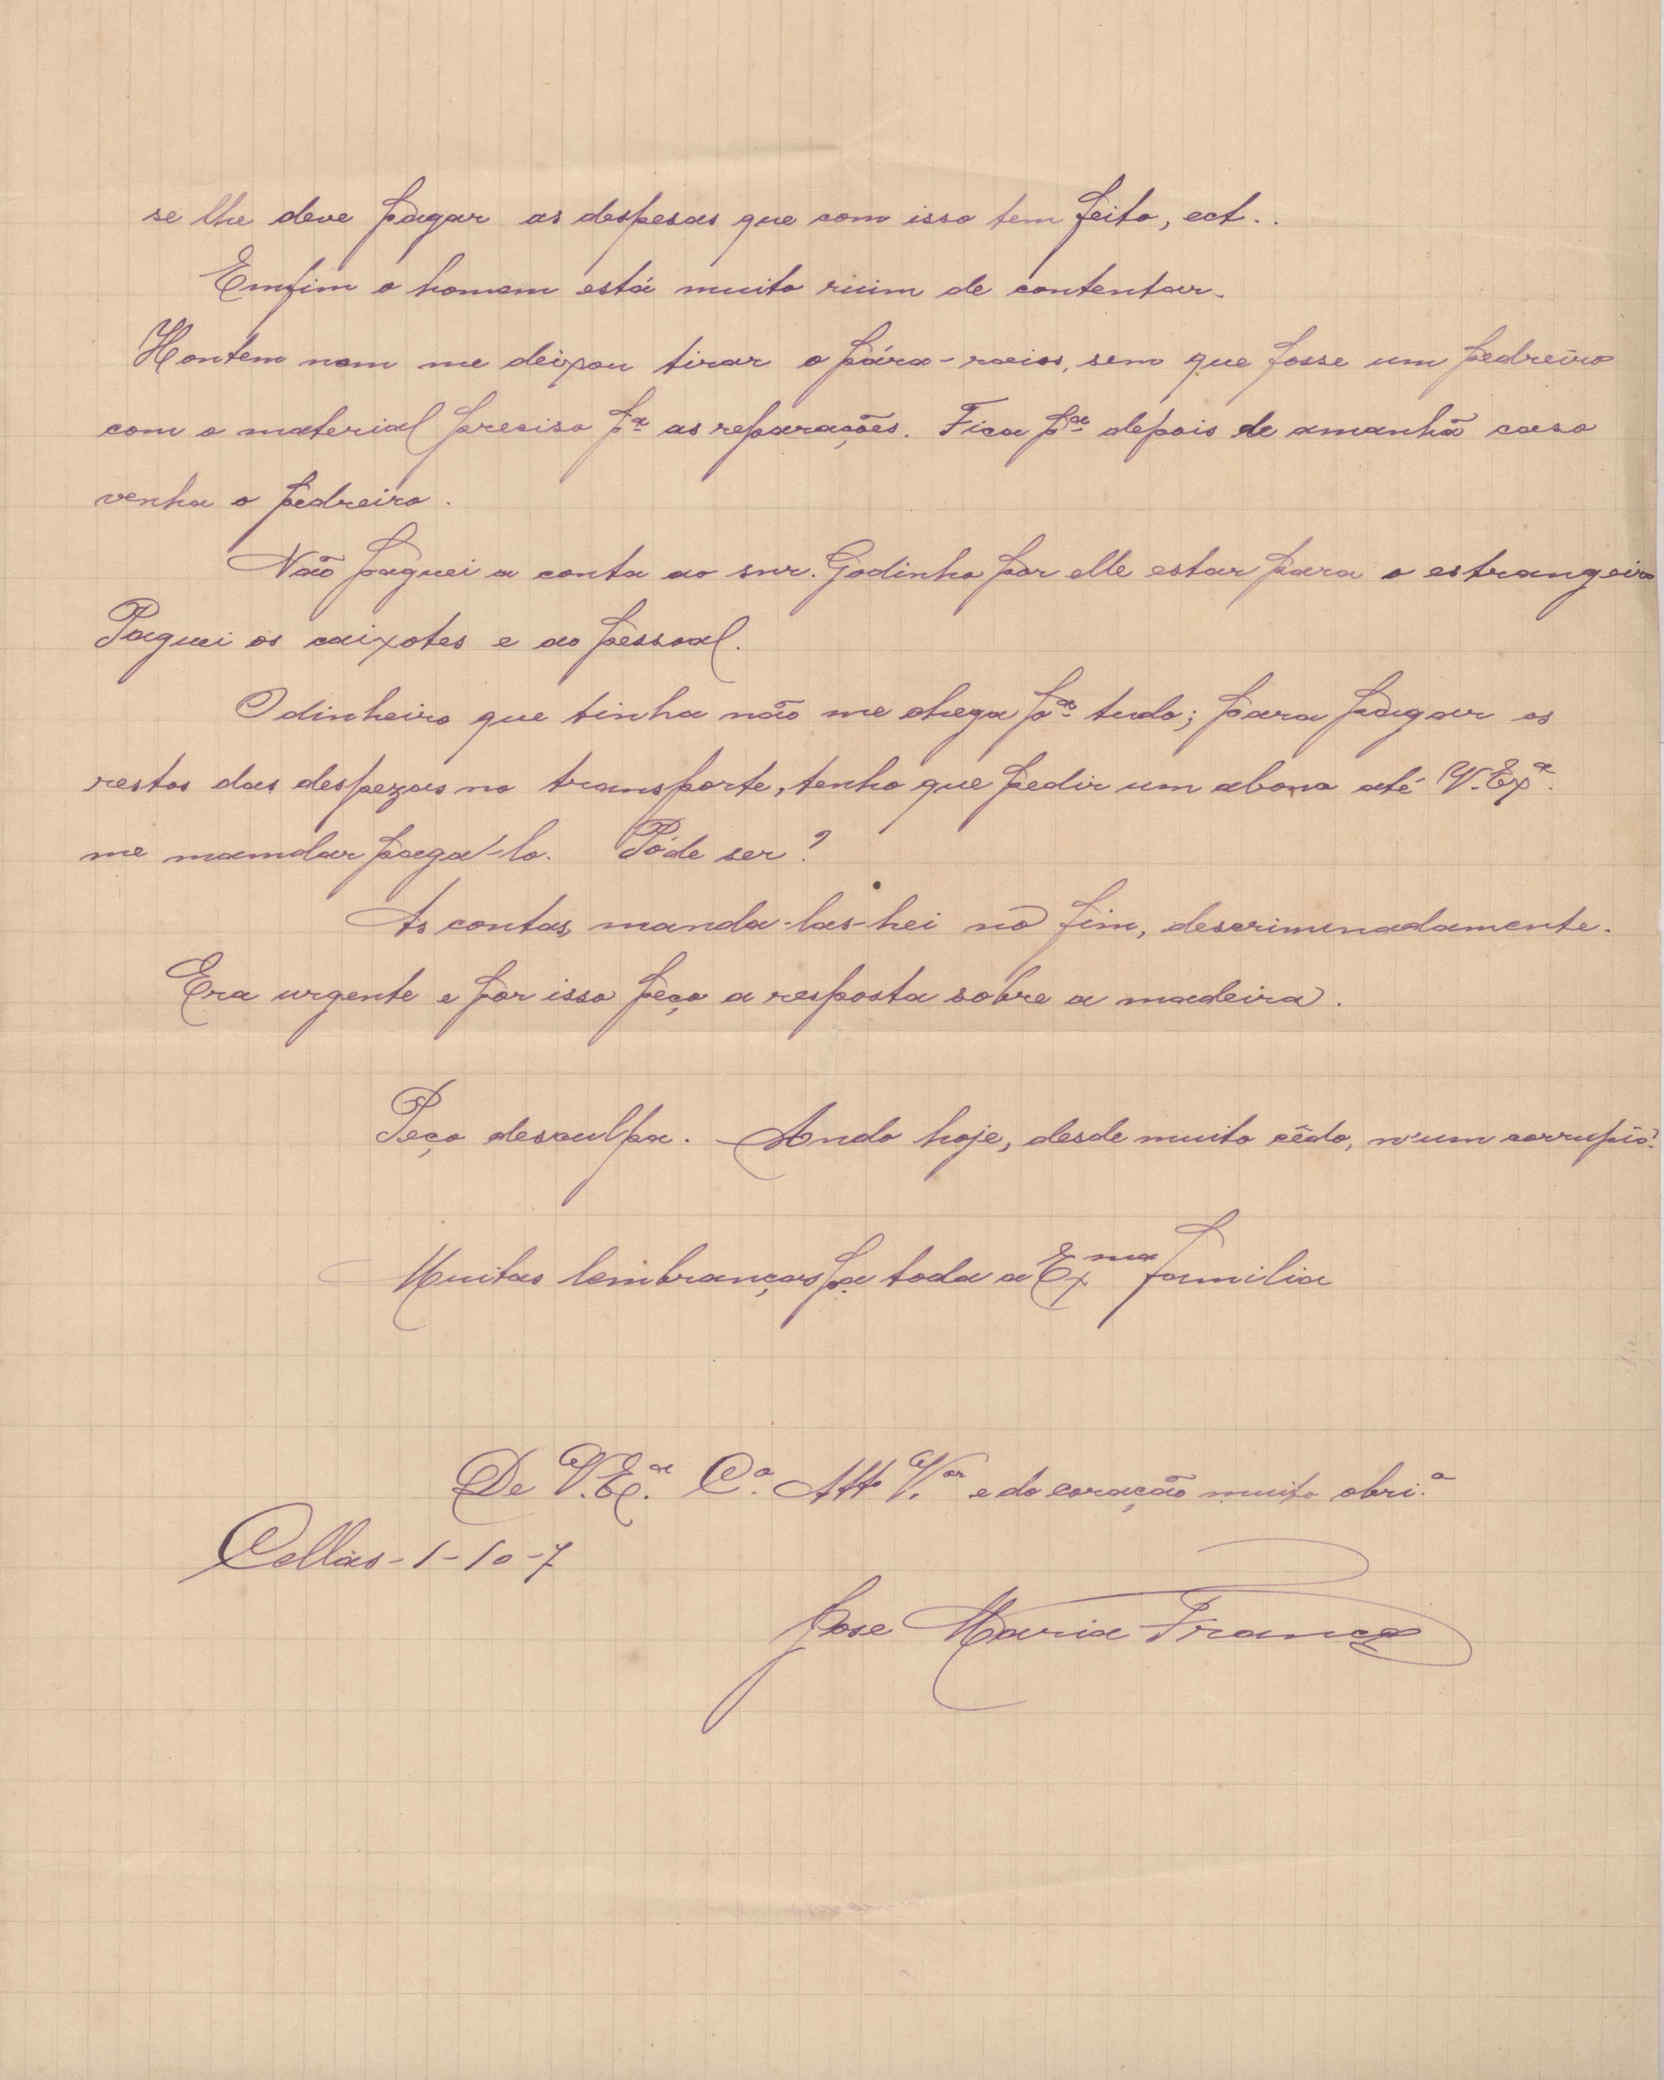 se lhe deve pagar as despesas que com isso tem feito, ect..
Emfim o homem está muito ruim de contentar.
Hontem nem me deixou tirar o pára-raios, sem que fosse um pedreiro
com o material preciso pª as reparações. Fica pª depois de amanhã caso
venha o pedreiro.
Não paguei a conta ao snr. Godinho por elle estar para o estrangeiro
Paguei os caixotes e ao pessoal.
O dinheiro que tinha não me chega pª tudo; para pagar os
restos das despezas no transporte, tenho que pedir um abono até V. Exª.
me mandar paga-lo. Póde ser?
As contas manda-las-hei no fim, descriminadamente.
Era urgente e por isso peço a resposta sobre a madeira.
Peço desculpa. Ando hoje, desde muito cêdo, n'um corrupio.
Muitas lembranças pª toda a Exma familia
De V. Exª. Cº. Attº Vor e do coração muito obri.º
Cellas-1-10-7
Jose Maria Franco